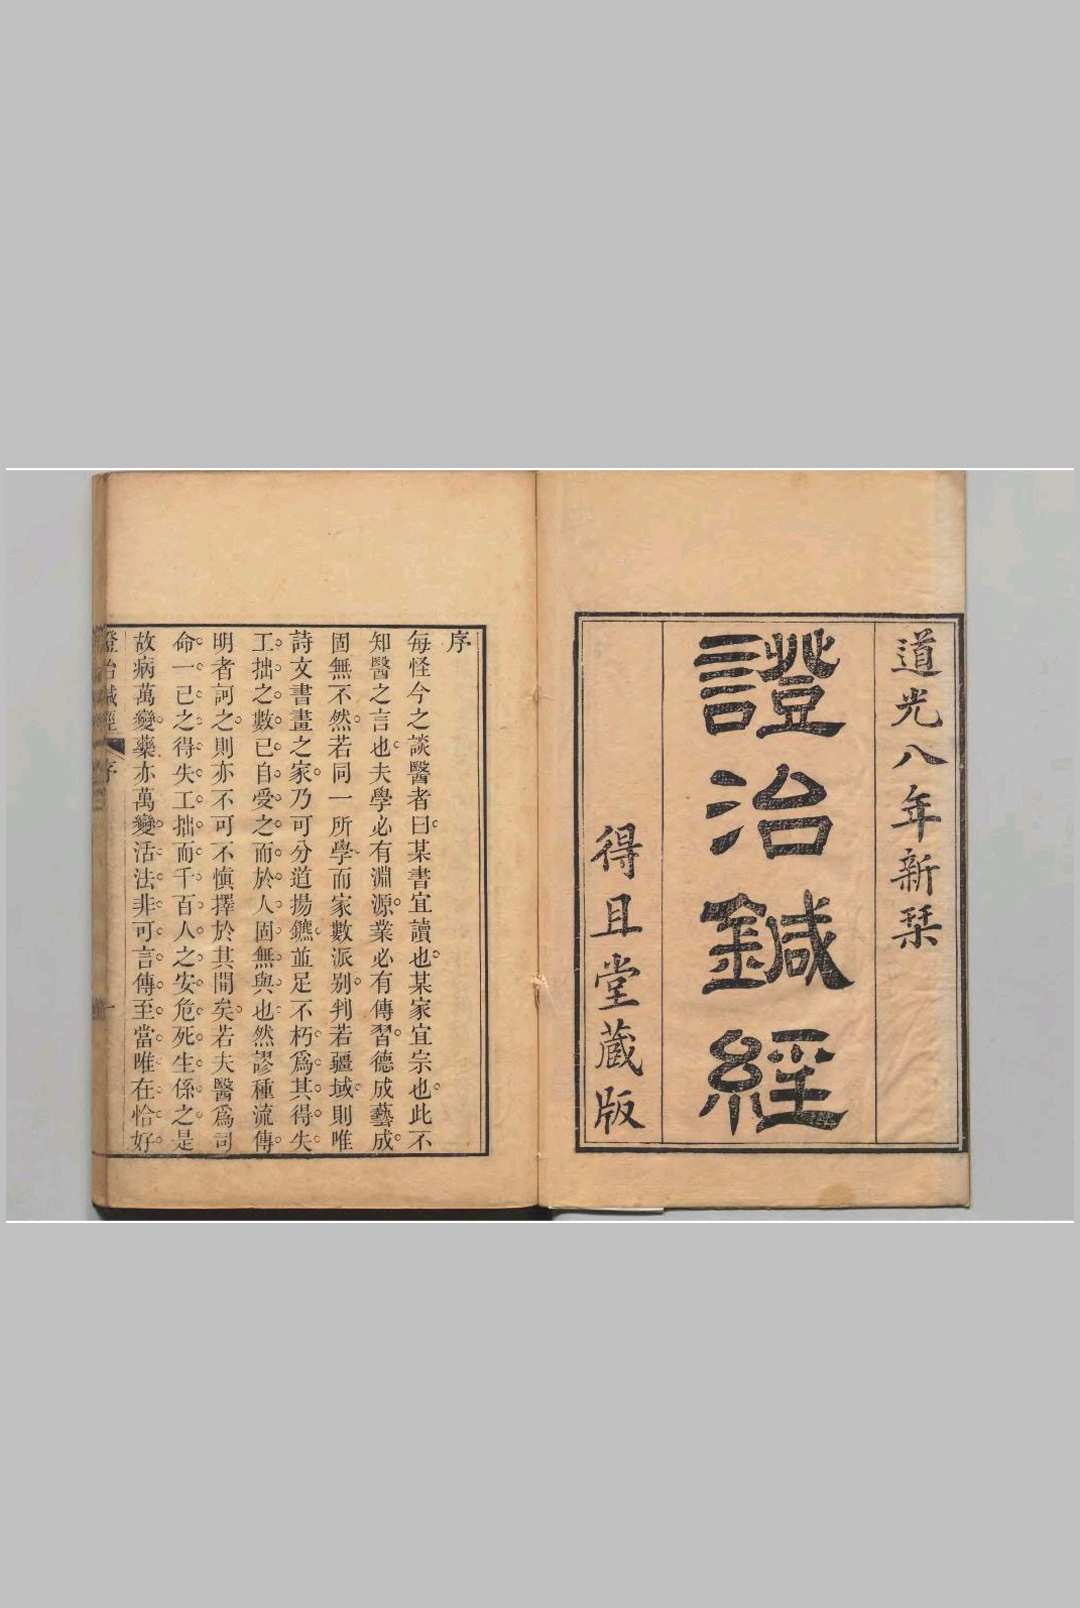 道光八年新栞
證治鍼經
得且堂藏版
序
每怪今之談醫者曰某書宜讀也某家宜宗也此不
知醫之言也夫學必有淵源業必有傳習德成藝成
固無不然若同一所學而家數派别判若疆域則唯
詩文書畫之家乃可分道揚鑣並足不朽爲其得失
工拙之數已自受之而於人固無與也然謬種流傳
明者訶之則亦不可不慎擇於其間矣若夫醫爲司
命一己之得失工拙而千百人之安危死生係之是
故病萬變藥亦萬變活法非可言傳至當唯在恰好
證治鍼經
序
一